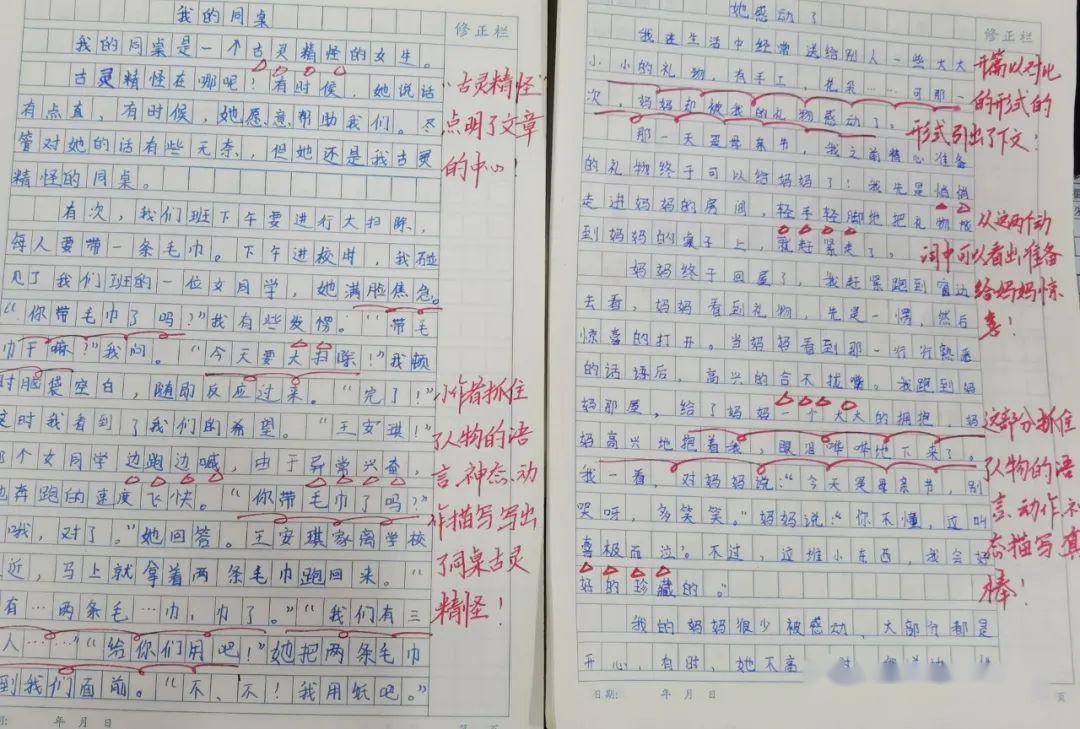 我的同桌
修正栏
我的同桌是一个古灵精怪的女生。
古灵精怪在哪呢？有时候，她说话
有点直，有时候，她愿意帮助我们。尽
管对她的话有些无奈，但她还是我古灵
精怪的同桌。
有次，我们班下午要进行大扫除，
每人要带一条毛巾。下午进校时，我碰
见了我们班的一位女同学，她满脸焦急。
“你带毛巾了吗？”我有些发愣。“带毛
巾干嘛？”我问。“今天要大扫除！”我顿
时脑袋空白，随即反应过来。“完了！”
这时我看到了我们的希望。“王安琪！”
那个女同学边跑边喊，由于异常兴奋，
她奔跑的速度飞快。“你带毛巾了吗？”
哦，对了。”她回答。王安琪家离学校
近，马上就拿着两条毛巾跑回来。“
有…两条毛…巾，巾了。”“我们有三
人……”“给你们用吧！”她把两条毛巾
到我们面前。“不、不！我用纸吧。”
年 月 日
“古灵精怪”
点明了文章
的中心！
小作者抓住
了人物的语
言、神态、动
作描写，写出
了同桌古灵
精怪！
她感动了
修正栏
我在生活中经常送给别人一些大大
小小的礼物，有手工，花朵……可那一
次，妈妈却被我的礼物感动了。
那一天是母亲节，我之前精心准备
的礼物终于可以给妈妈了！我先是悄悄
走进妈妈的房间，轻手轻脚地把礼物放
到妈妈的桌子上，就赶紧走了。
妈妈终于回屋了，我赶紧跑到窗边
去看，妈妈看到礼物，先是一愣，然后
惊喜的打开。当妈妈看到那一行行熟悉
的话语后，高兴的合不拢嘴。我跑到妈
妈那屋，给了妈妈一个大大的拥抱，妈
妈高兴地抱着我，眼泪哗哗地下来了。
我一看，对妈妈说：“今天是母亲节，别
哭呀，多笑笑。”妈妈说：“你不懂，这叫
喜极而泣。不过，这堆小东西，我会好
好的珍藏的。”
我的妈妈很少被感动，大部分都是
开心，有时，她不高
日期： 年 月 日
页
开篇以对比
的形式的
形式引出了下文！
从这两个动
词中可以看出准备
给妈妈惊
喜！
这部分抓住
了人物的语
言、动作、神
态描写，真
棒！